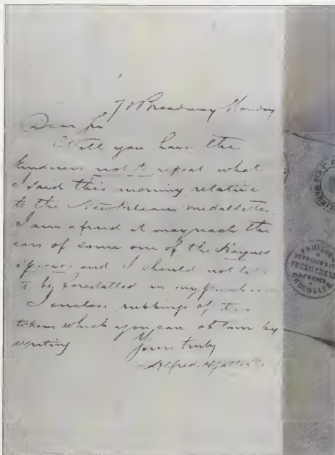 78 Broadway Monday
Dear Sir
Will you have the
kindness not to repeat what
I said this morning relative
to the New Orleans medalets.
I am afraid it may reach the
ears of some one of the
and I should not
to be forestalled in my
I enclose rubbings of
tokens which you can obtain by
writing Yours truly
Alfred